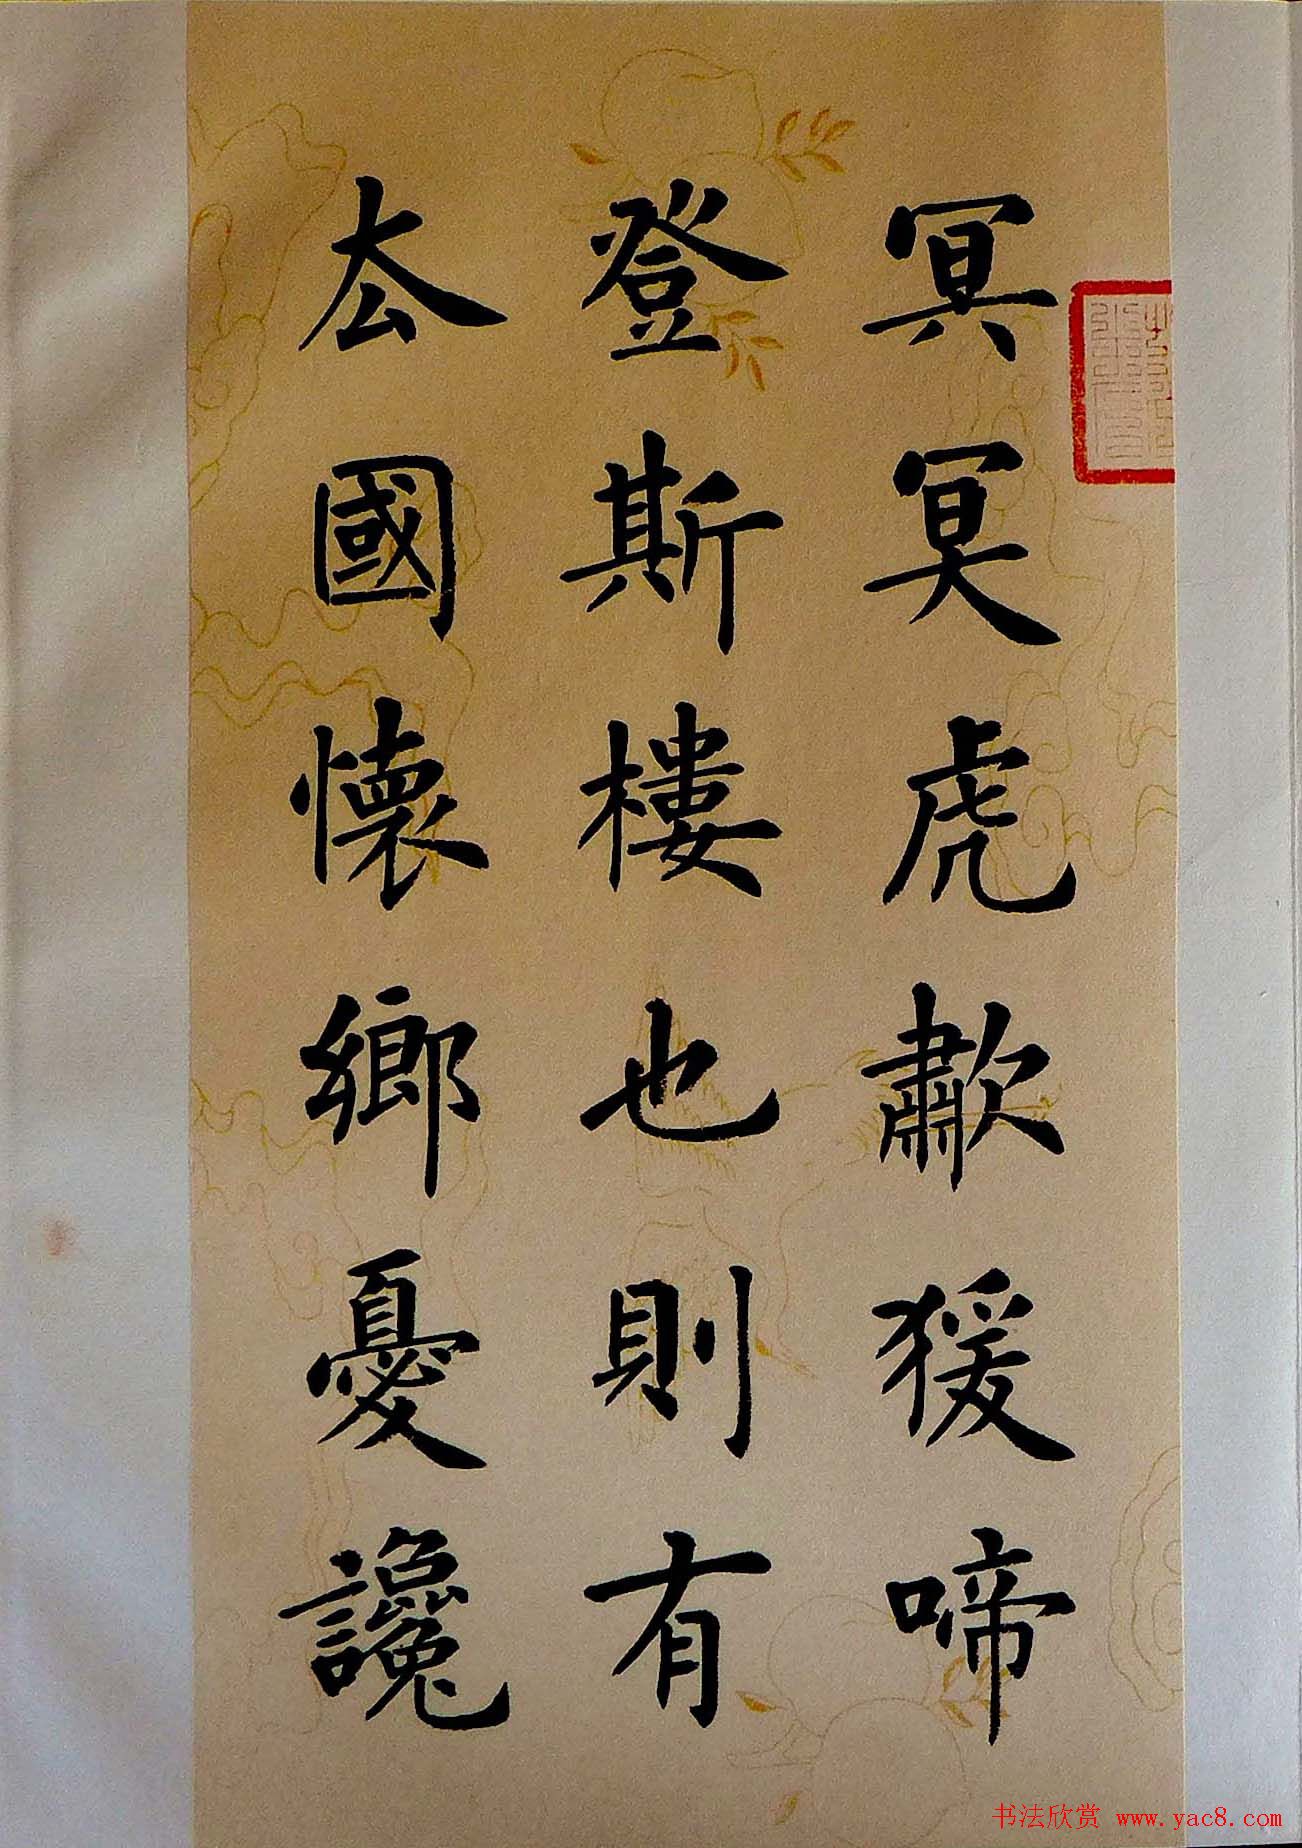 冥冥虎歗猨啼
登斯樓也則有
厺國懷鄉憂讒
书法欣赏 www.yac8.com